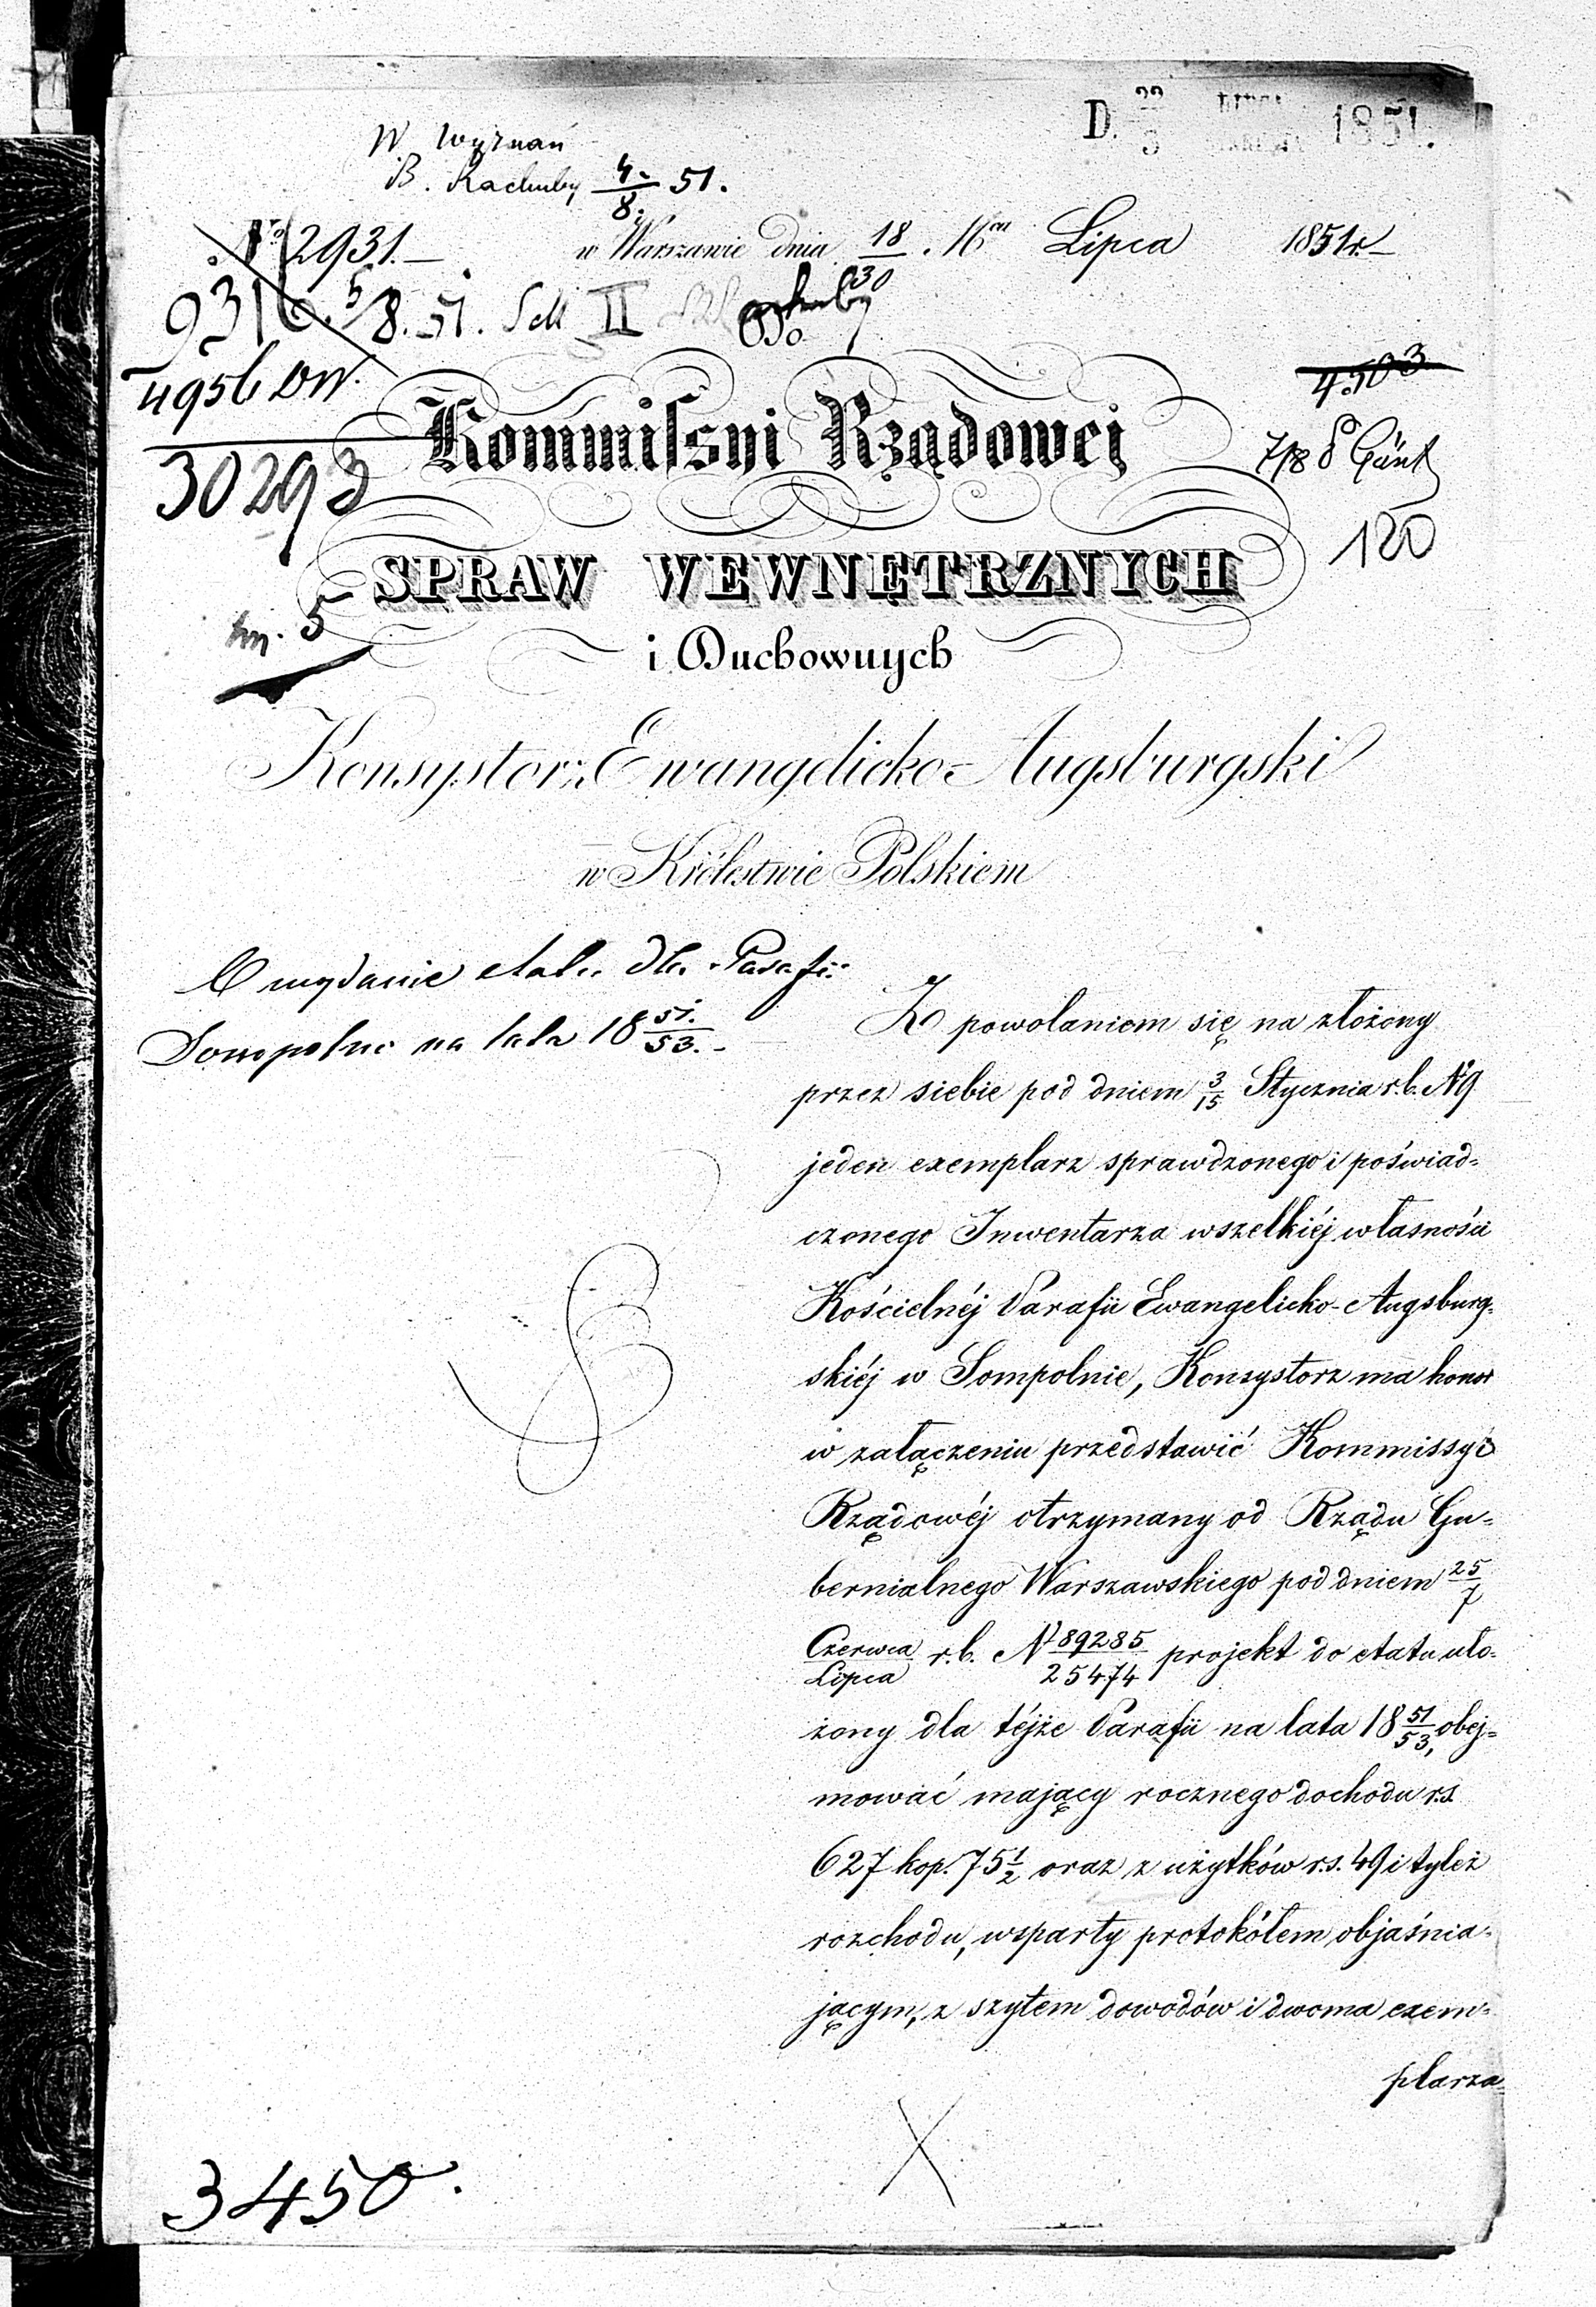 D. 22/3 1851.
W. Wyznań
B. Kachuby 4/8. 51.
№ 2931.—
w Warszawie dnia 18/30 Mca Lipca 1851 r.—
9316. 5/8. 51. Sek II
Do
4956 DW.
4503
Kommissyi Rządowej
30293
7/8 Günt
120
SPRAW WEWNĘTRZNYCH
5
i Duchownych
Konsystorz Ewangelicko-Augsburgski
w Królestwie Polskiem
O wydanie etatu dla Parafii
Sompolno na lata 18 51/53.-
Z powołaniem się na złożony
przez siebie pod dniem 3/15 Stycznia r.b. № 9
jeden exemplarz sprawdzonego i poświad=
czonego Inwentarza wszelkiéj własności
Kościelnéj Parafii Ewangelicko-Augsburg=
skiéj w Sompolnie, Konsystorz ma honor
w załączeniu przedstawić Kommissyi
Rządowéj otrzymany od Rządu Gu=
bernialnego Warszawskiego pod dniem 25/7
Czerwca/Lipca r.b. № 89285/25474 projekt do etatu uło=
żony dla téjże Parafii na lata 18 51/53, obej=
mować mający rocznego dochodu r.s.
627 kop. 75 1/2 oraz z użytków r.s. 49 i tyleż
rozchodu, wsparty protokółem objaśnia=
jącym, z szytem dowodów i dwoma exem=
plarza=
3450.